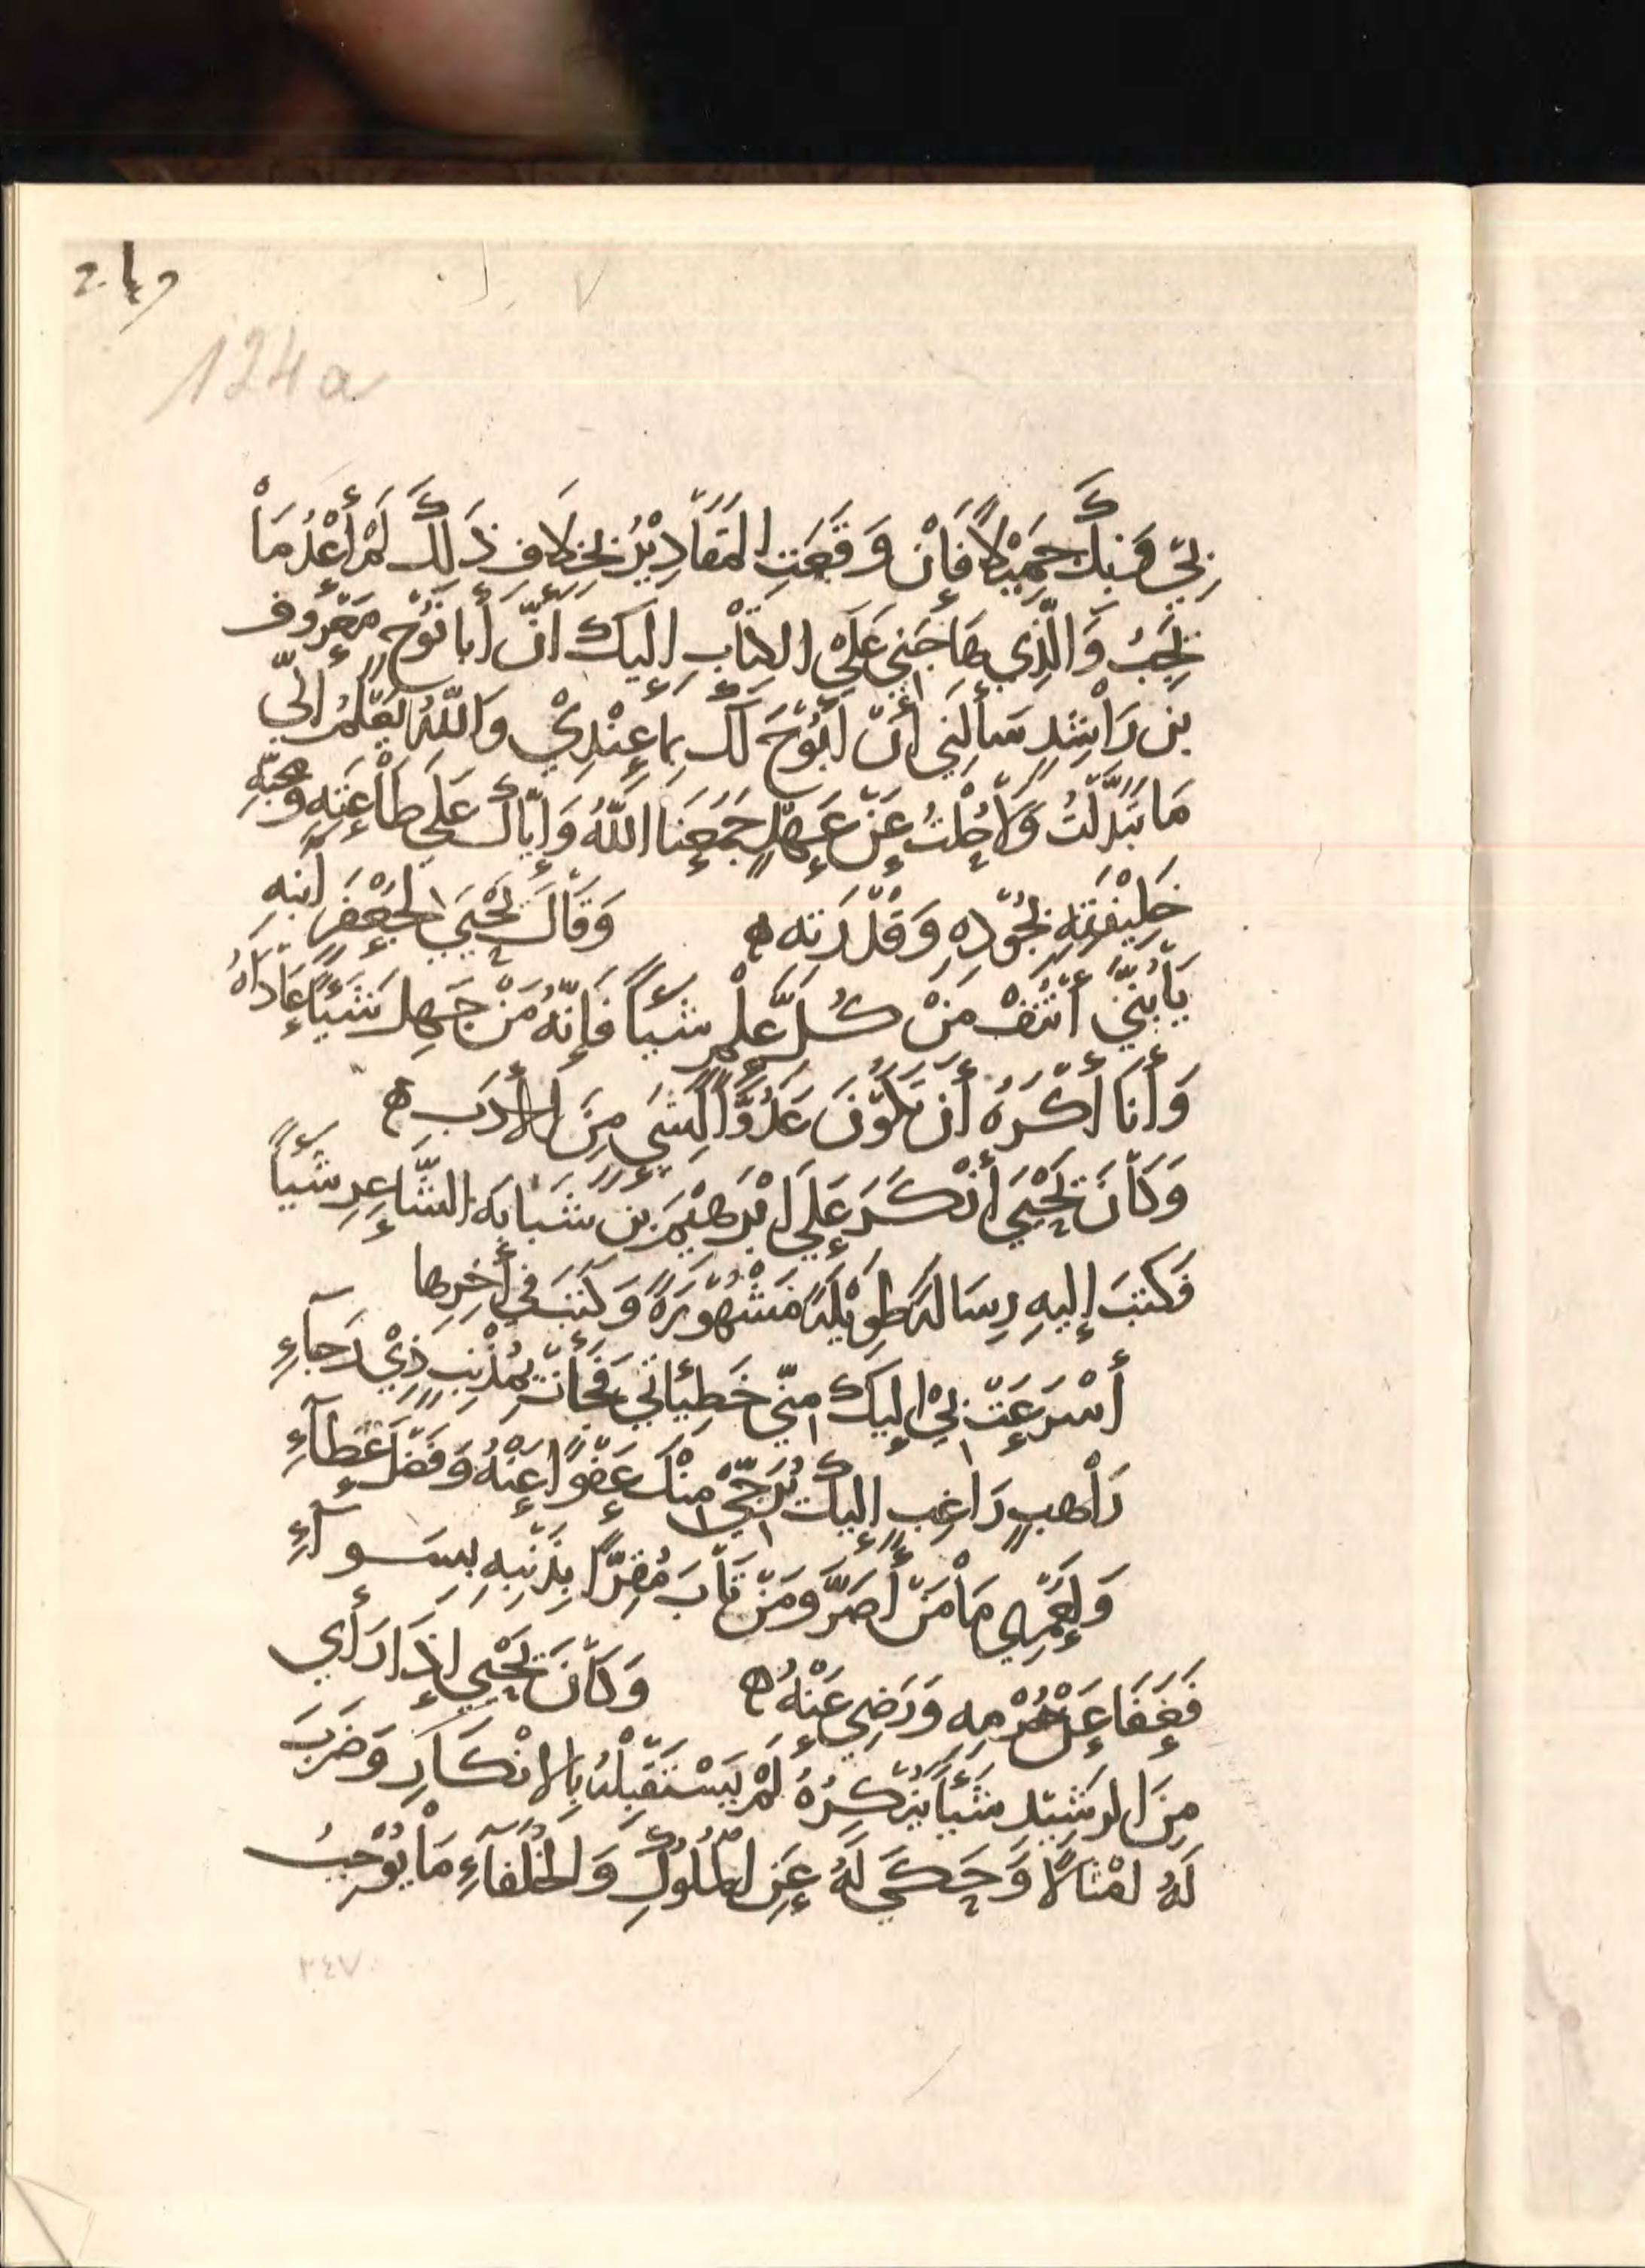 249
124a
بِي وَبِكَ جَمِيْلًا فَإِنْ وَقَعَتِ المَقَادِيْرُ بِخِلَافِ ذَلِكَ لَمْ أَعْدُ مَا
يَجِبُ وَالَّذِي هَاجَنِي عَلَى الكِتَابِ إِلَيكَ أَنَّ أَبَا نُوْحٍ مَعْرُوف
بن رَاشِدٍ سَأَلَنِي أَنْ أَبُوْحَ لَكَ بِمَا عِنْدِيْ وَاللَّهُ يَعْلَمُ انّي
مَا تَبَدَّلْتُ وَلَا حُلْتُ عَنْ عَهْدٍ جَمَعَنَا اللَّهُ وَإِيّاكَ عَلَى طَاعَتِهِ وَمحبّهِ
خَلِيْفَتِهِ بِجُوْدِهِ وَقُدْرَتِه ه وَقَالَ يَحْيَى لِجَعْفَرَ ابْنِهِ
يَا بُنَيَّ انْتَقْ مِنْ كُلِّ عِلْمٍ شَيْاً فَإِنَّهُ مَنْ جَهِل شَيْئًا عَادَاهُ
وَأَنَا أَكْرَهُ أَنْ تَكُوْنَ عَدُوًّا لِشَيءٍ مِنَ الأَدَب ه
وَكَانَ يَحْيَى أَنْكَرَ عَلَى ابْرَهِيْمَ بن شَبَابَه الشَّاعِرِ شَيْاً
فَكَتَبَ إِلَيهِ رِسَالَةً طَوِيْلَةً مَشْهُوْرَةً وَكَتَبَ فِي أَخِرِهَا
أَسْرَعَتْ بِيْ إِلَيكَ مِنّي خَطِيئاتي فَجَأَتْ بِمُذْنِبٍ ذِيْ رَجآءِ
رَاهبٍ رَاغِبٍ إِلَيكَ يُرَجِّي مِنْكَ عَفْوًا عَنْهُ وَفَضْلَ عَطآءِ
وَلَعَمْرِي مَا مَنْ أَصَرَّ وَمَنْ تَابَ مُقِرًّا بِذَنْبِهِ بِسَوآءِ
فَعَفَا عَنْ جُرْمِهِ وَرَضِيَ عَنْهُ ه وَكَانَ يَحْيَى اذَا رَأَي
مِنَ الرشِيْدِ شَيْئاً يُنْكِرُهُ لَمْ يَسْتَقْبِلْهُ بِالانْكَارِ وَضَرَبَ
لَهُ امْثَالًا وَحَكَي لَهُ عَنِ المُلُوكِ وَالخُلَفآءِ مَا يُوْجِبُ
٣٤٧